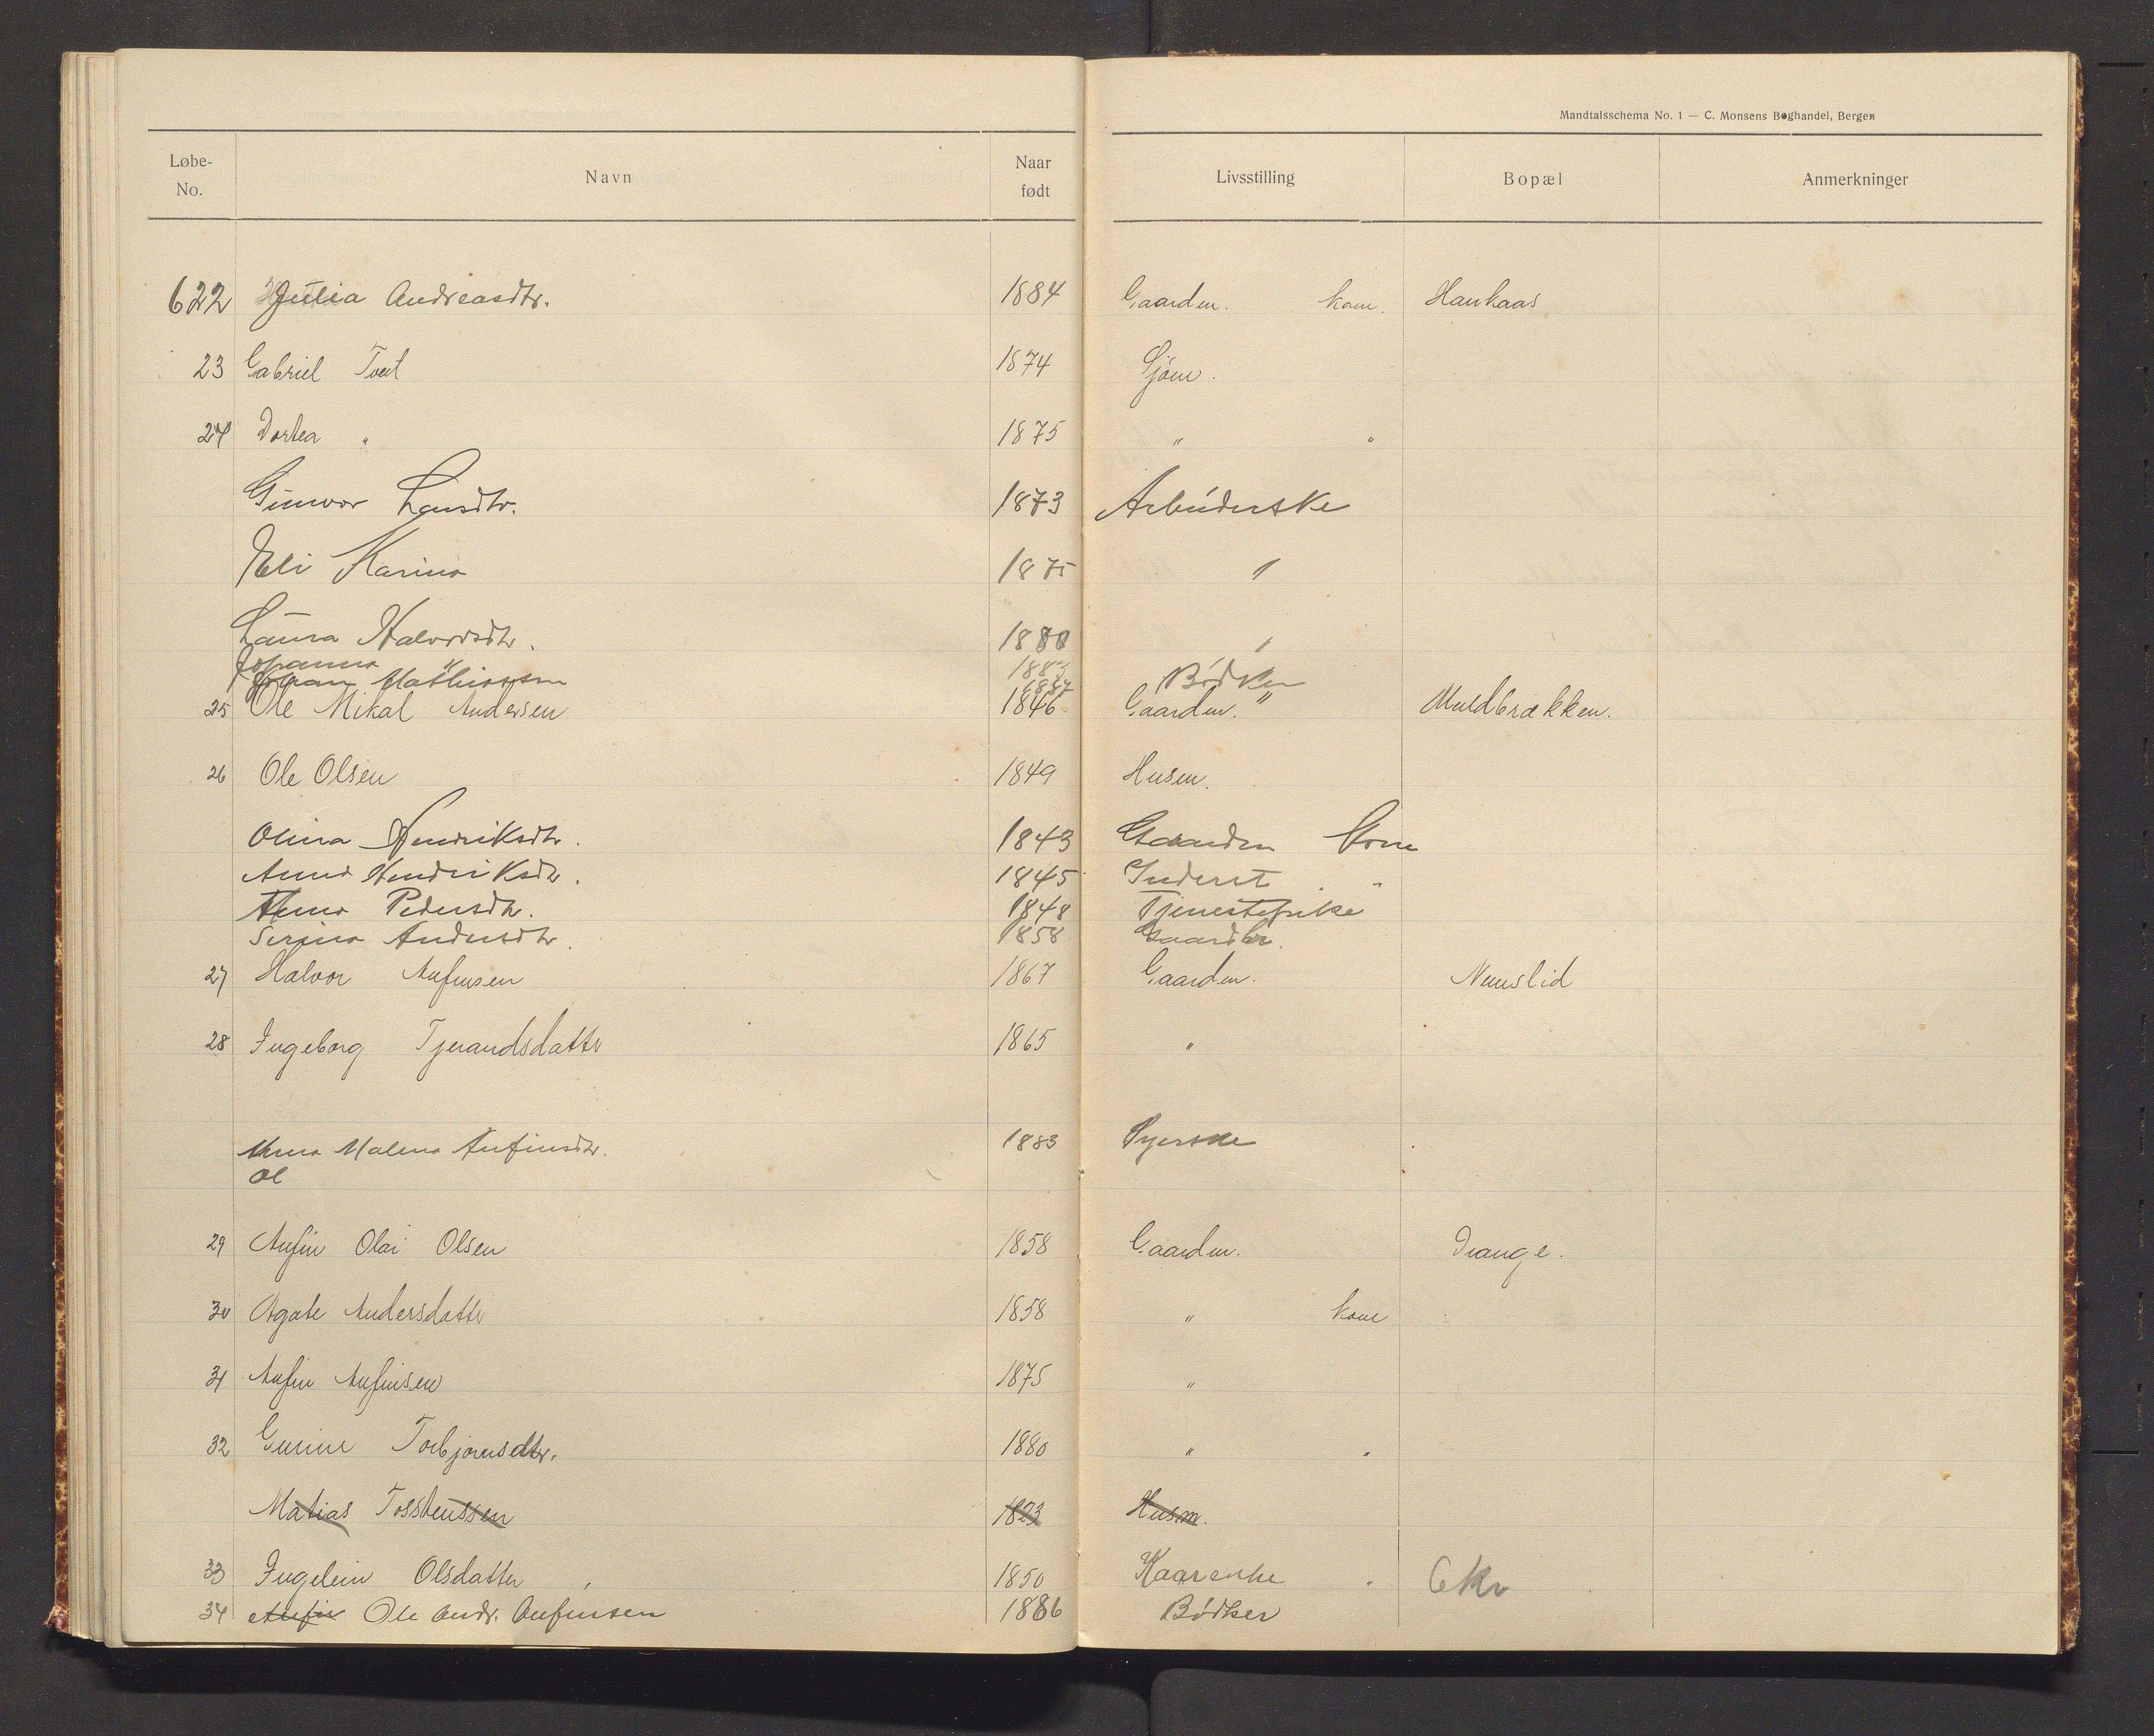 Mandtalsschema No. 1 — C. Monsens Boghandel, Bergen
Løbe-No. Navn Naar født Livsstilling Bopæl Anmerkninger
622 Julia Andreasdtr. 1884 Gaardm. kone. Haukaas
23 Gabriel Tveit 1874 Gjøm.
24 Dortea " 1875 " "
Gunvor Larsdtr. 1873 Arbeiderske
Eli Karina 1875 "
Laura Halvorsdtr. 1880 "
Johanna " 1883
Johan Mathiassen 1887 Bødker
25 Ole Mikal Andersen 1846 Gaardm. " Muldbrækken.
26 Ole Olsen 1849 Husm.
Olina Hendriksdtr. 1843 Gaardm Kone
Anna Hendriksdtr. 1845 Inderst "
Anna Pedersdtr. 1848 Tjenestepike
Serina Andersdtr. 1858 Gaardbr.
27 Halvor Anfinsen 1867 Gaardm. Nunslid
28 Ingeborg Tjerandsdatter 1865 "
Anna Malena Anfinsdtr. 1883 Syerske
Ol
29 Anfin Olai Olsen 1858 Gaardm. Drange.
30 Agate Andersdatter 1858 " kone
31 Anfin Anfinsen 1875 "
32 Gurine Torbjørnsdtr. 1880 " "
Matias Tosstenssen 1823 Husm.
33 Ingelein Olsdatter 1850 Kaarenke 6 Kr
34 Anfin Ole Andr. Anfinsen 1886 Bødker